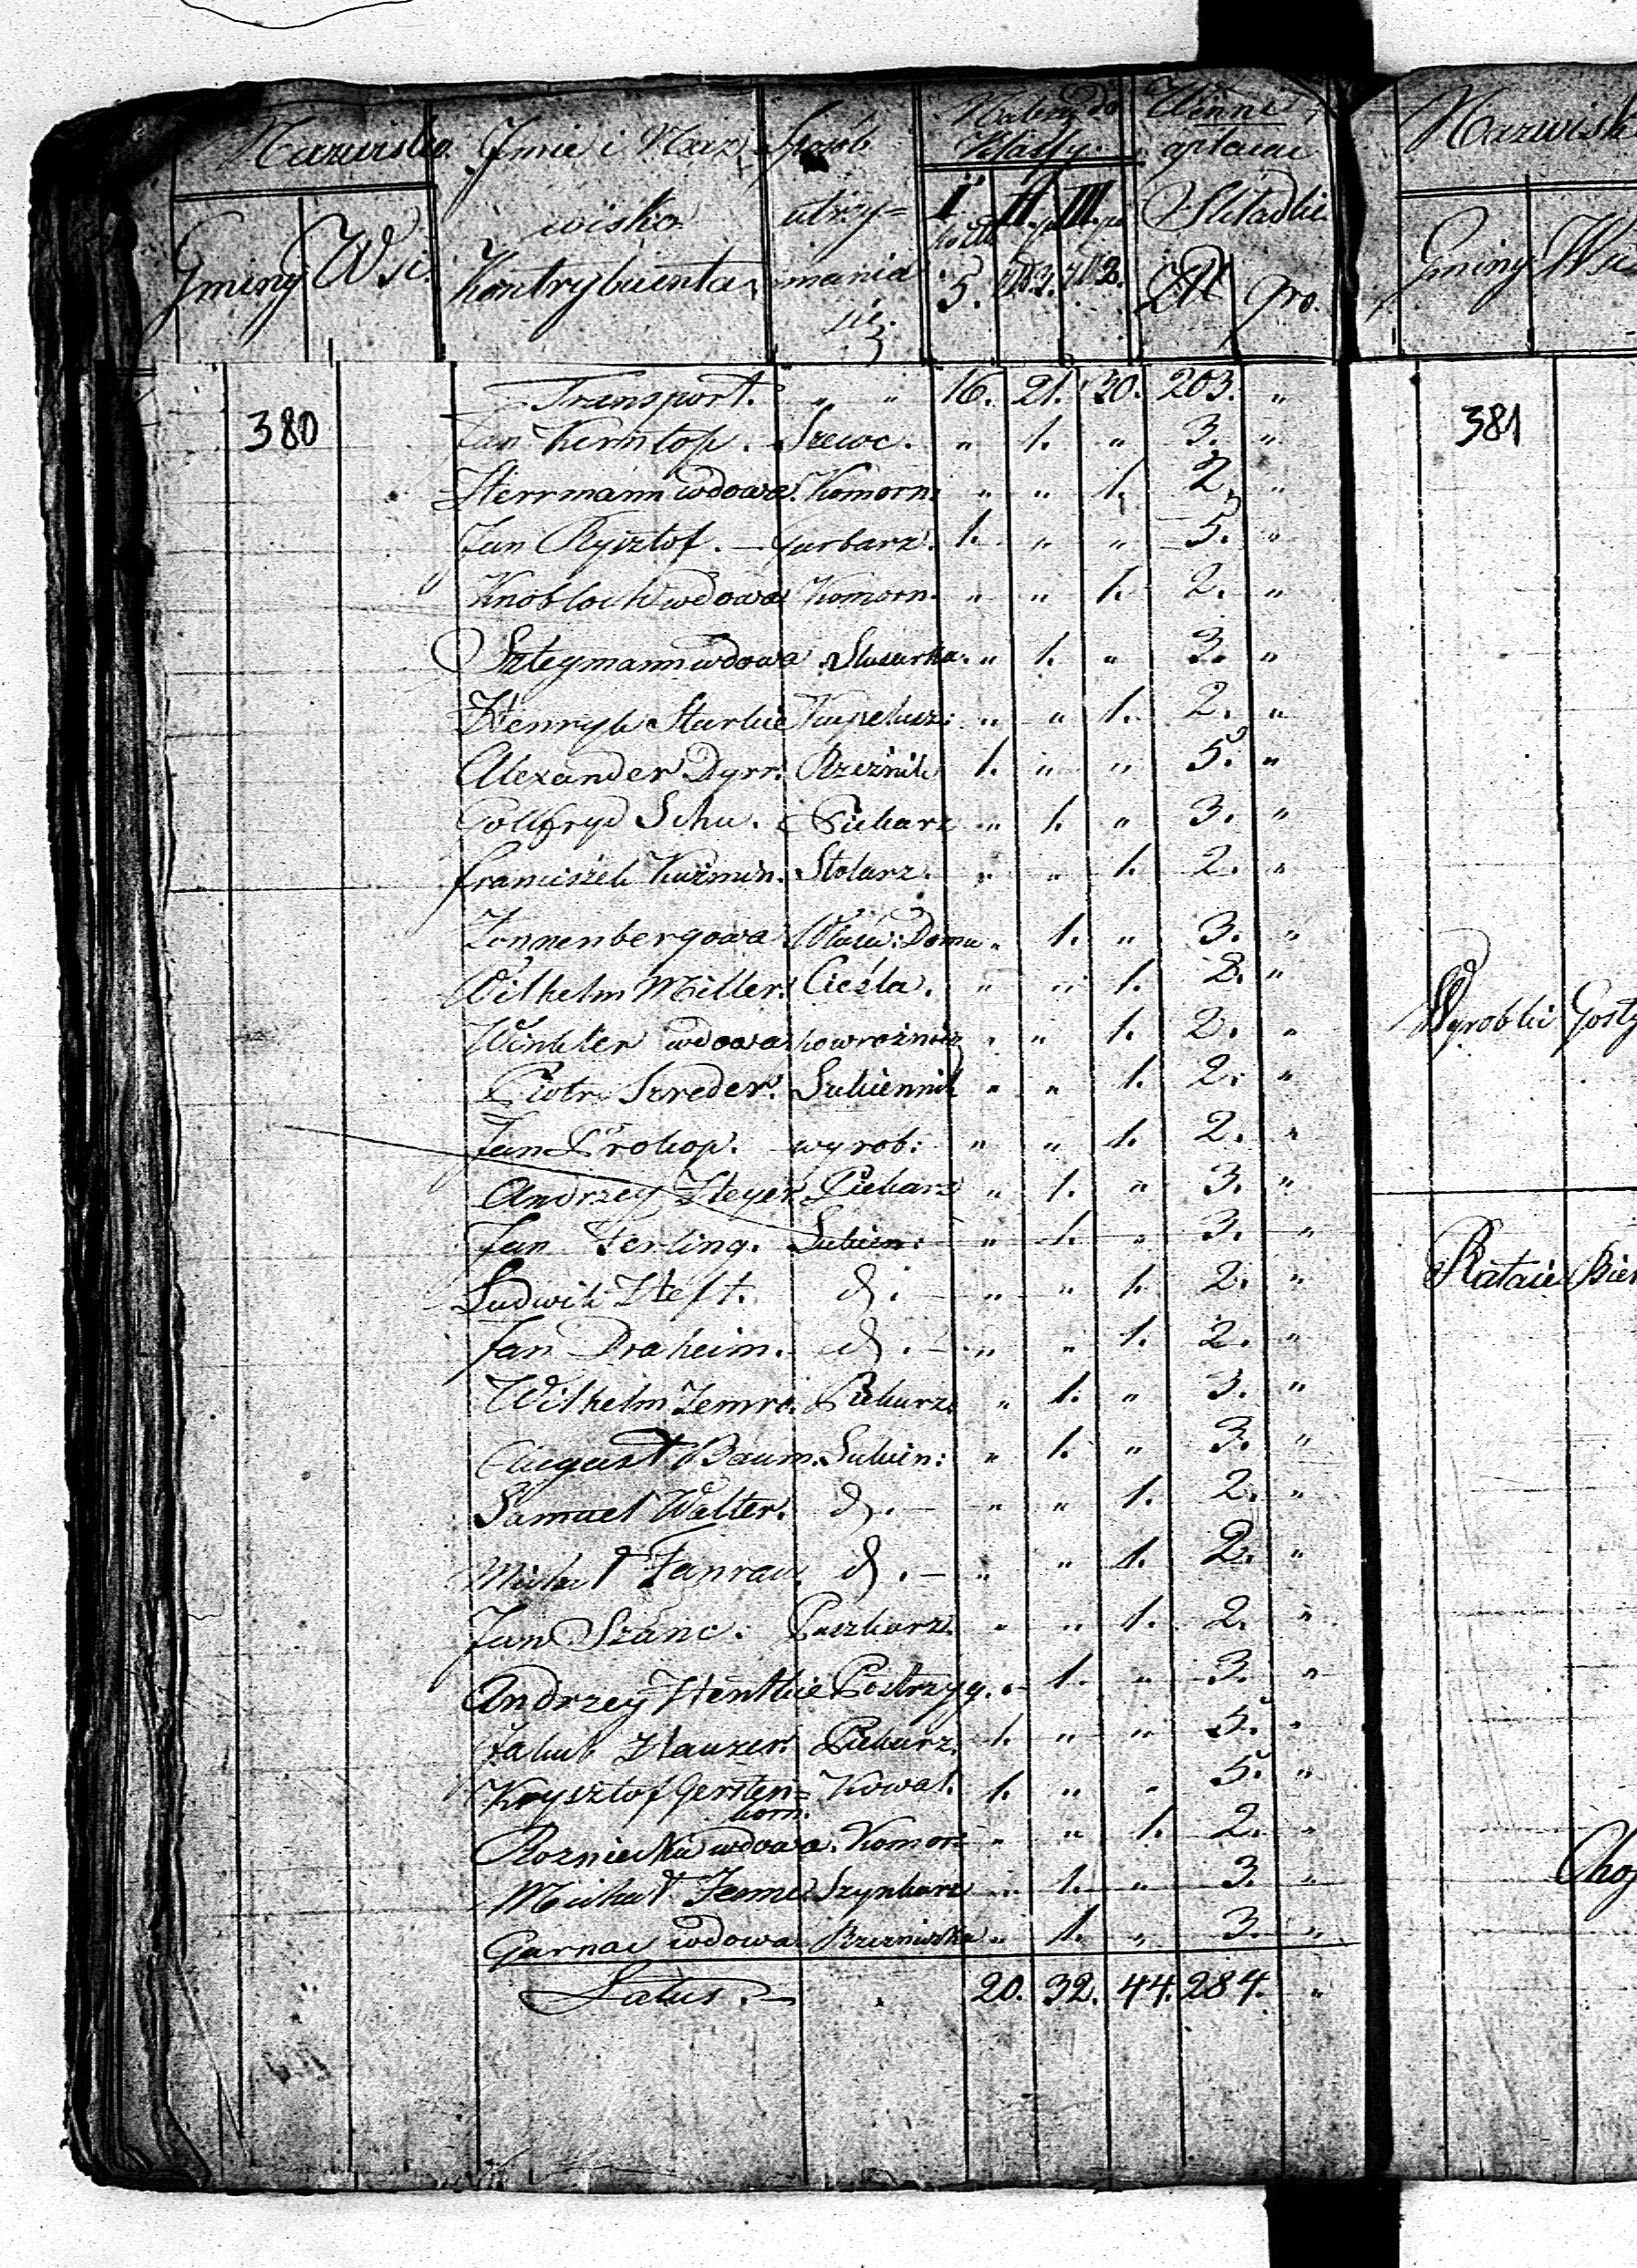 Nazwisko. Imie i Naz= Sposób Należy do Klassy. Winni opłacać Nazwisk
Gminy Wsi. wiska Kontrybuenta utrzy= mania się. I. II. III. Składki
5. 3. 2. Złł gro. Gminy Wsi
Transport. " " 16. 21. 30. 203. "
380 Jan Kerntop. Szewc. " 1. " 3. " 381
Herrmann wdowa. Komorn: " " 1. 2. "
Jan Rysztof. — Garbarz. 1. " " 5. "
Knobloch wdowa Komorn. " " 1. 2. "
Sztegmann wdowa Slusarka. " 1. " 3. "
Henryk Starke Kapelusz: " " 1. 2. "
Alexander Dyrr. Rzeźnik 1. " " 5. "
Gottfryd Schu. Piekarz " 1. " 3. "
Franciszek Kuźmin. Stolarz. " " 1. 2. "
Zonnenbergowa Właśc: Domu " 1. " 3. "
Wilhelm Miller. Cieśla. " " 1. 2. "
Winkler wdowa powroźnicz " " 1. 2. "
Wyrobki Gosty
Piotr Szreder. Sukiennik " " 1. 2. "
Jan Prokop. wyrob: " " 1. 2. "
Andrzey Heyer Piekarz " 1. " 3. "
Jan Ferling. Sukien: " 1. " 3. "
Rataie Bier
Ludwik Heft. d. — " " 1. 2. "
Jan Draheim. d. — " " 1. 2. "
Wilhelm Zemro. Piekarz. " 1. " 3. "
August Baum. Sukien: " 1. " 3. "
Samuel Walter. d. — " " 1. 2. "
Michał Fanrau. d. — " " 1. 2. "
Jan Szanc. Puszkarz. " " 1. 2. "
Andrzey Hentke Postrzyg. " 1. " 3. "
Jakub Hauzer. Piekarz. 1. " " 5. "
Krysztof Gersten= Kowal. 1. " " 5. "
korn.
Rozniecka wdowa. Komor: " " 1. 2. "
Michał Szynkarz " 1. " 3. "
Garnac wdowa Rzeźniczka " 1. " 3. "
Latus. — 20. 32. 44. 284. "